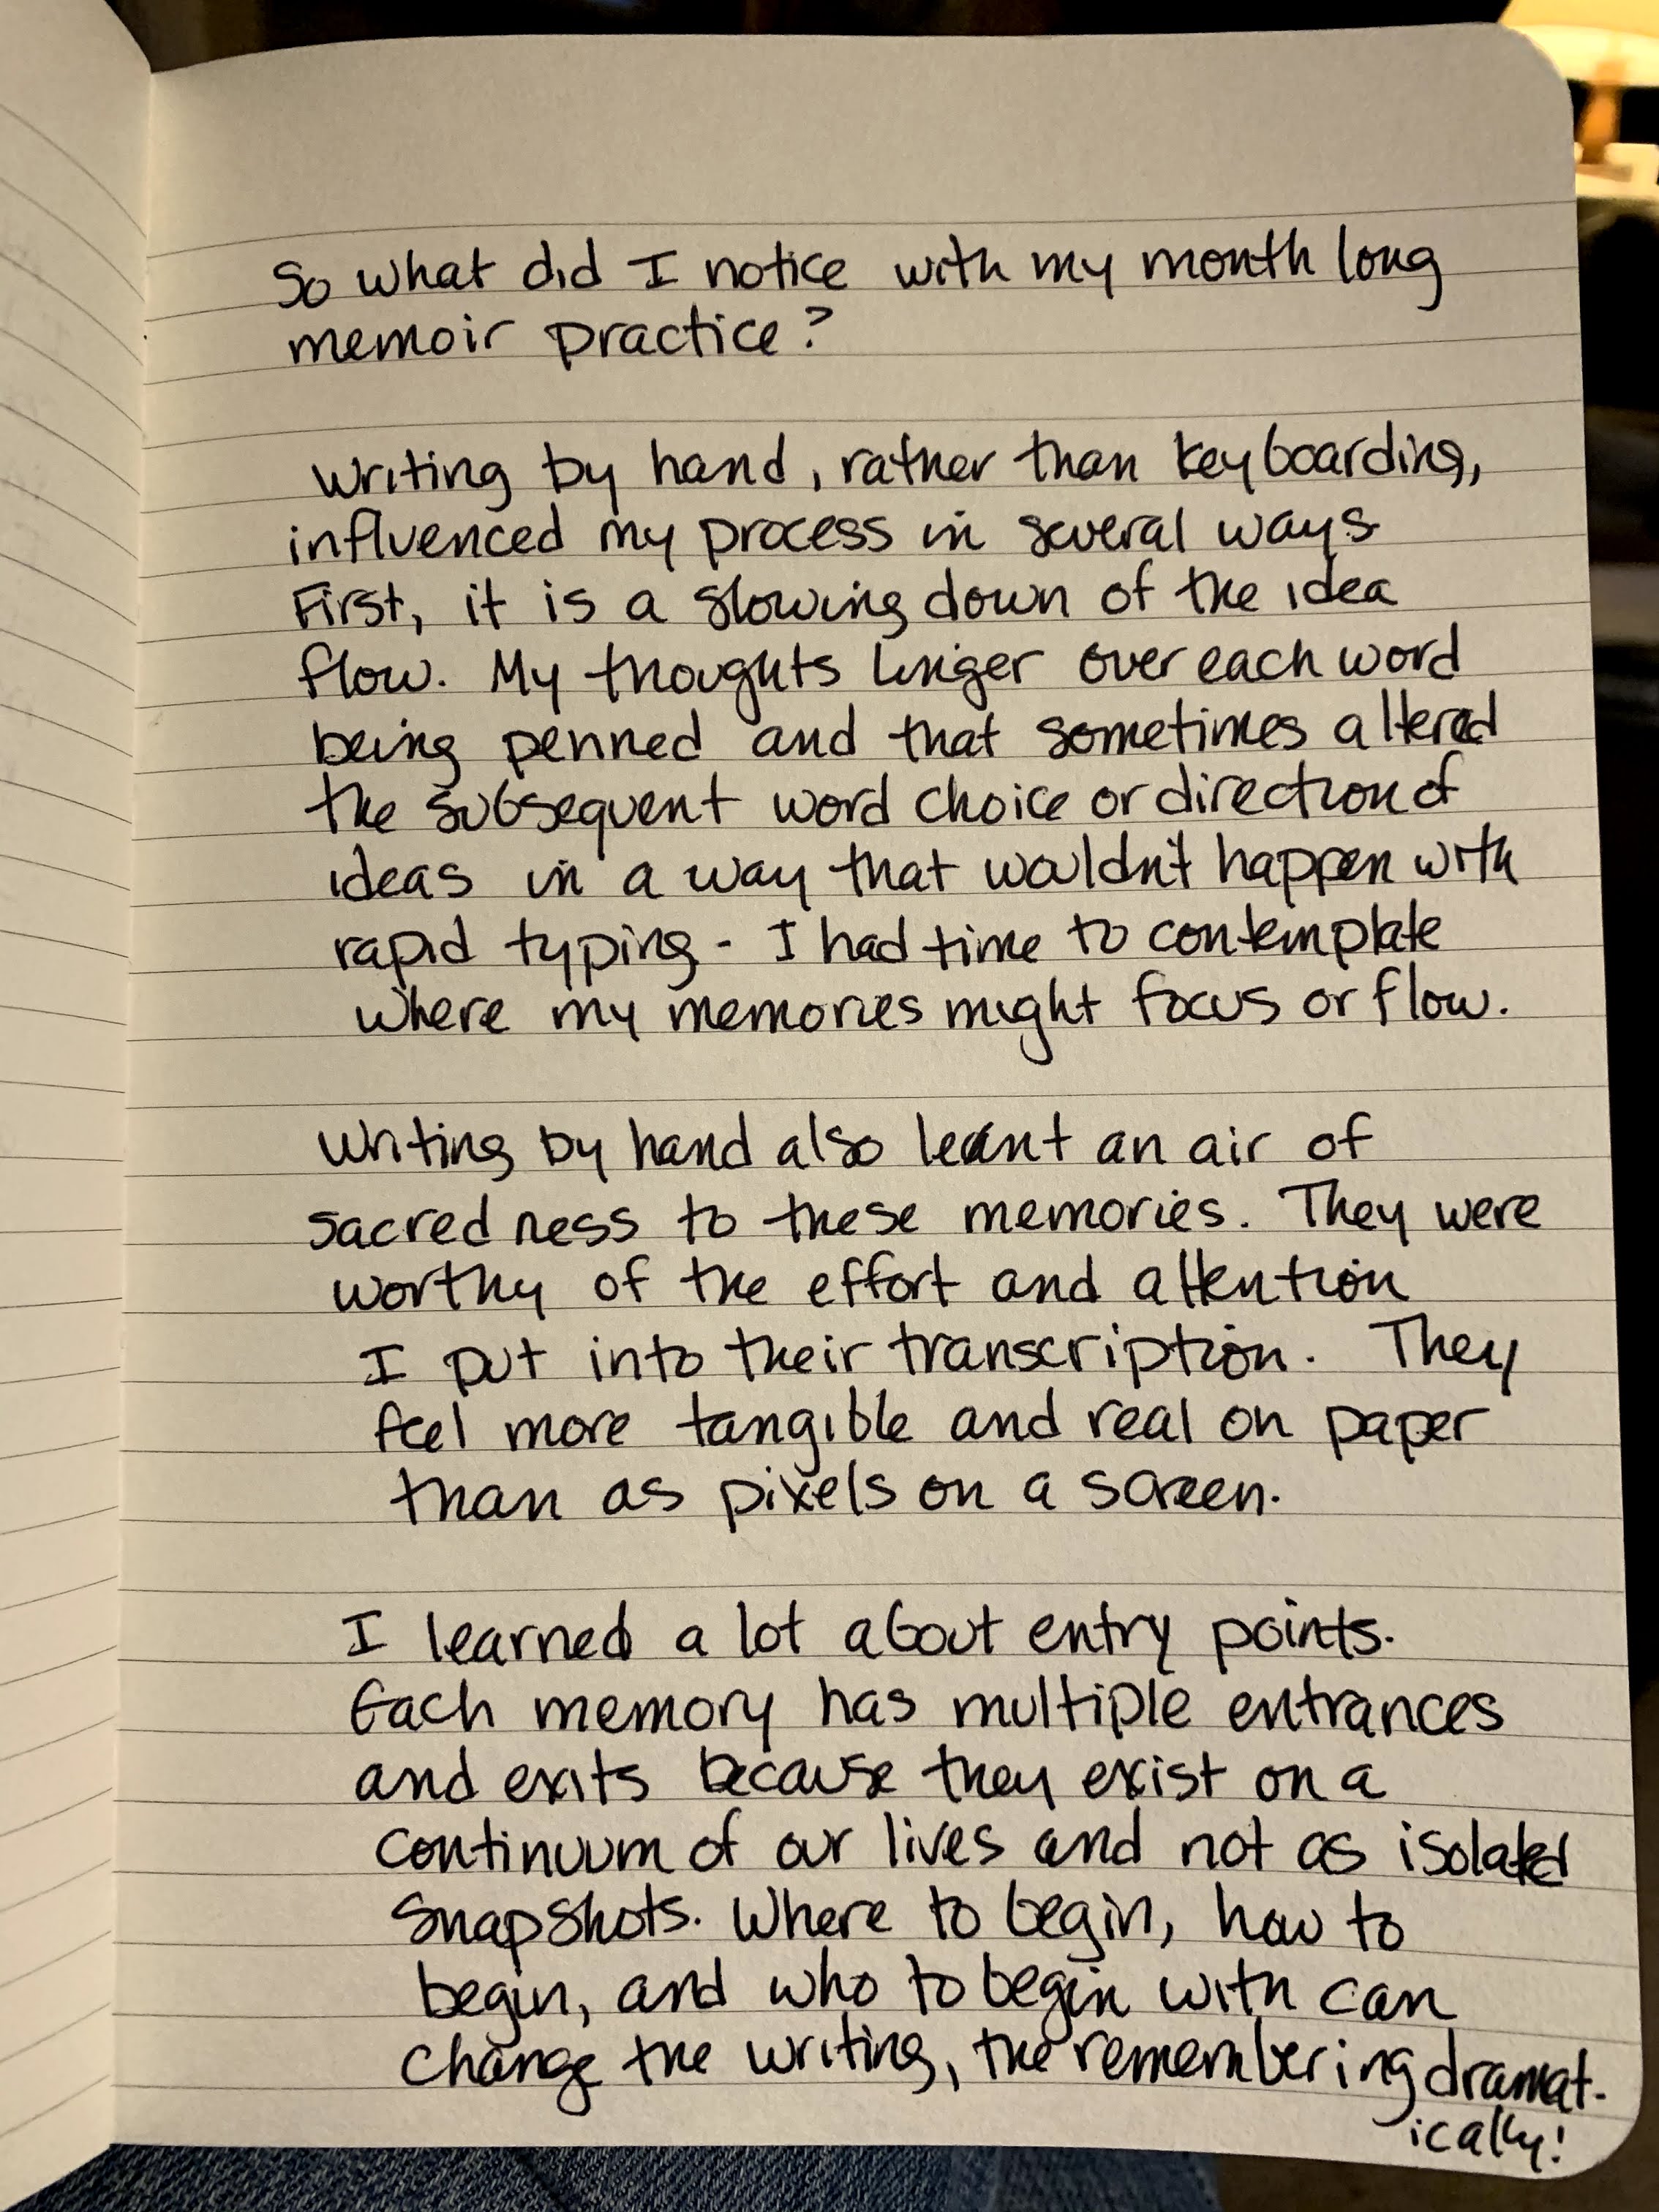 So what did I notice with my month long
memoir practice?
Writing by hand, rather than keyboarding,
influenced my process in several ways
First, it is a slowing down of the idea
flow. My thoughts linger over each word
being penned and that sometimes altered
the subsequent word choice or direction of
ideas in a way that wouldn't happen with
rapid typing - I had time to contemplate
where my memories might focus or flow.
Writing by hand also leant an air of
sacredness to these memories. They were
worthy of the effort and attention
I put into their transcription. They
feel more tangible and real on paper
than as pixels on a screen.
I learned a lot about entry points.
Each memory has multiple entrances
and exits because they exist on a
continuum of our lives and not as isolated
snapshots. Where to begin, how to
begin, and who to begin with can
change the writing, the remembering dramat-
ically!